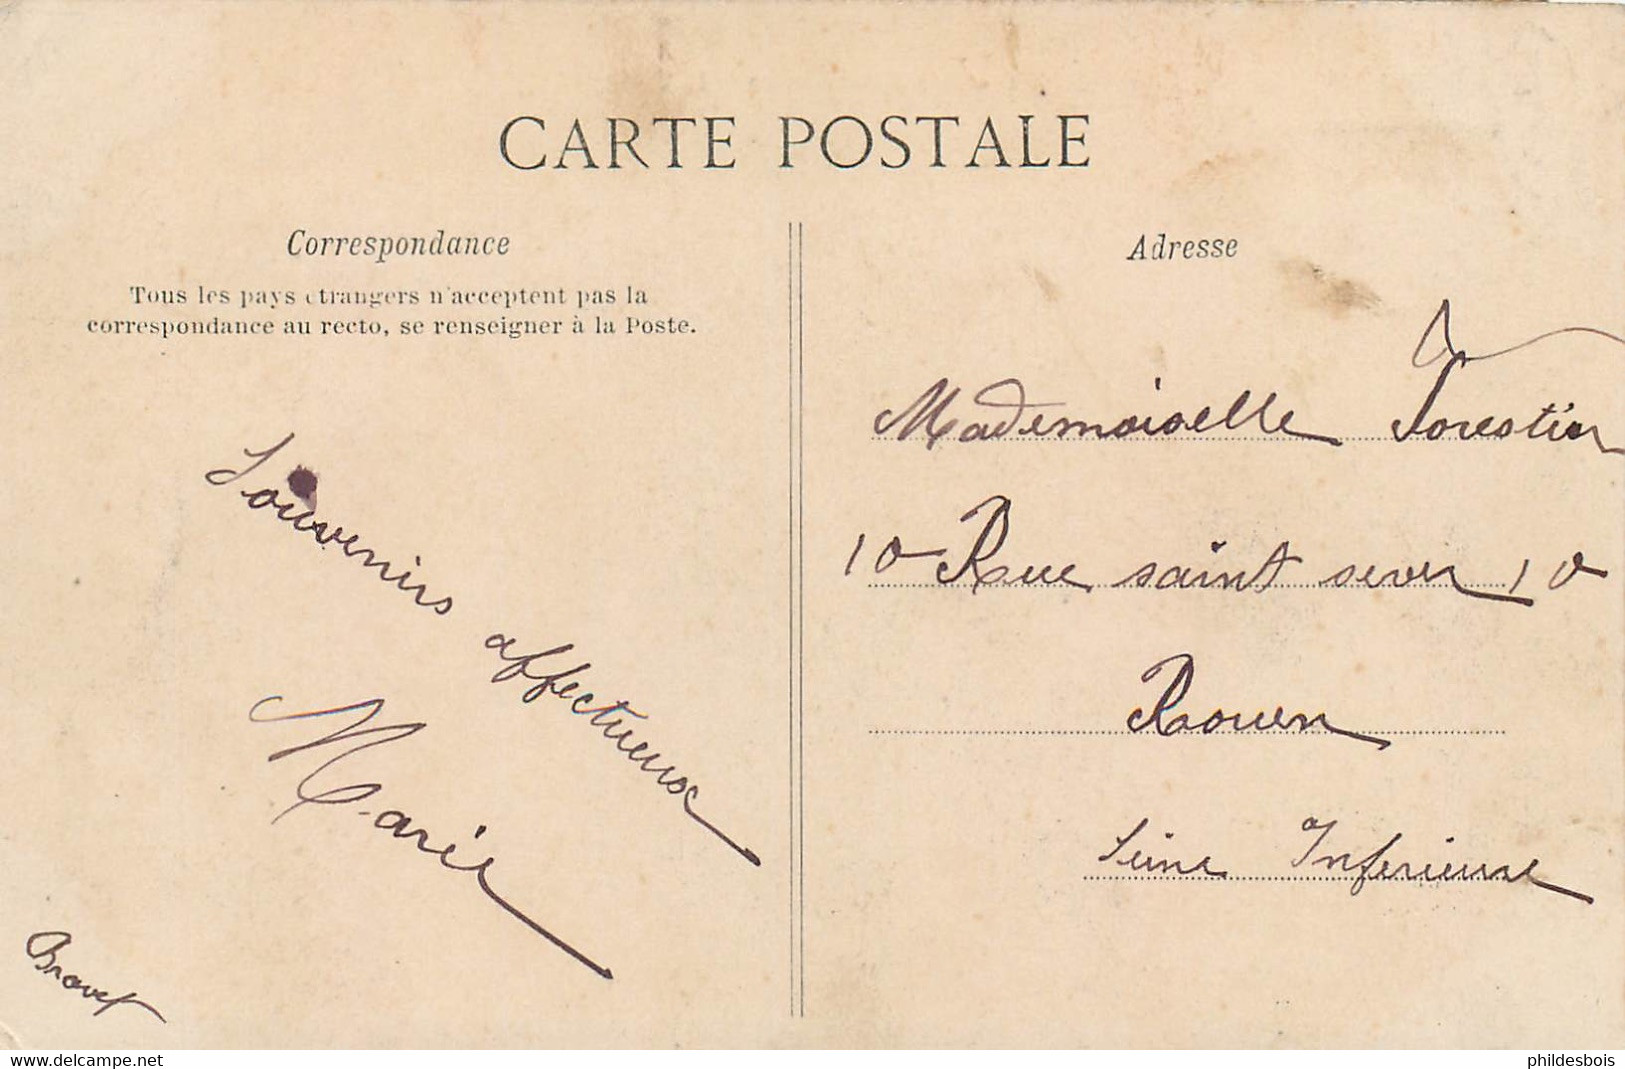 CARTE POSTALE
Correspondance
Tous les pays étrangers n'acceptent pas la
correspondance au recto, se renseigner à la Poste.
Souvenirs affectueux
Marie
Adresse
Mademoiselle Forestier
10 Rue saint sever 10
Rouen
Seine Inferieure
www.delcampe.net
phildesbois